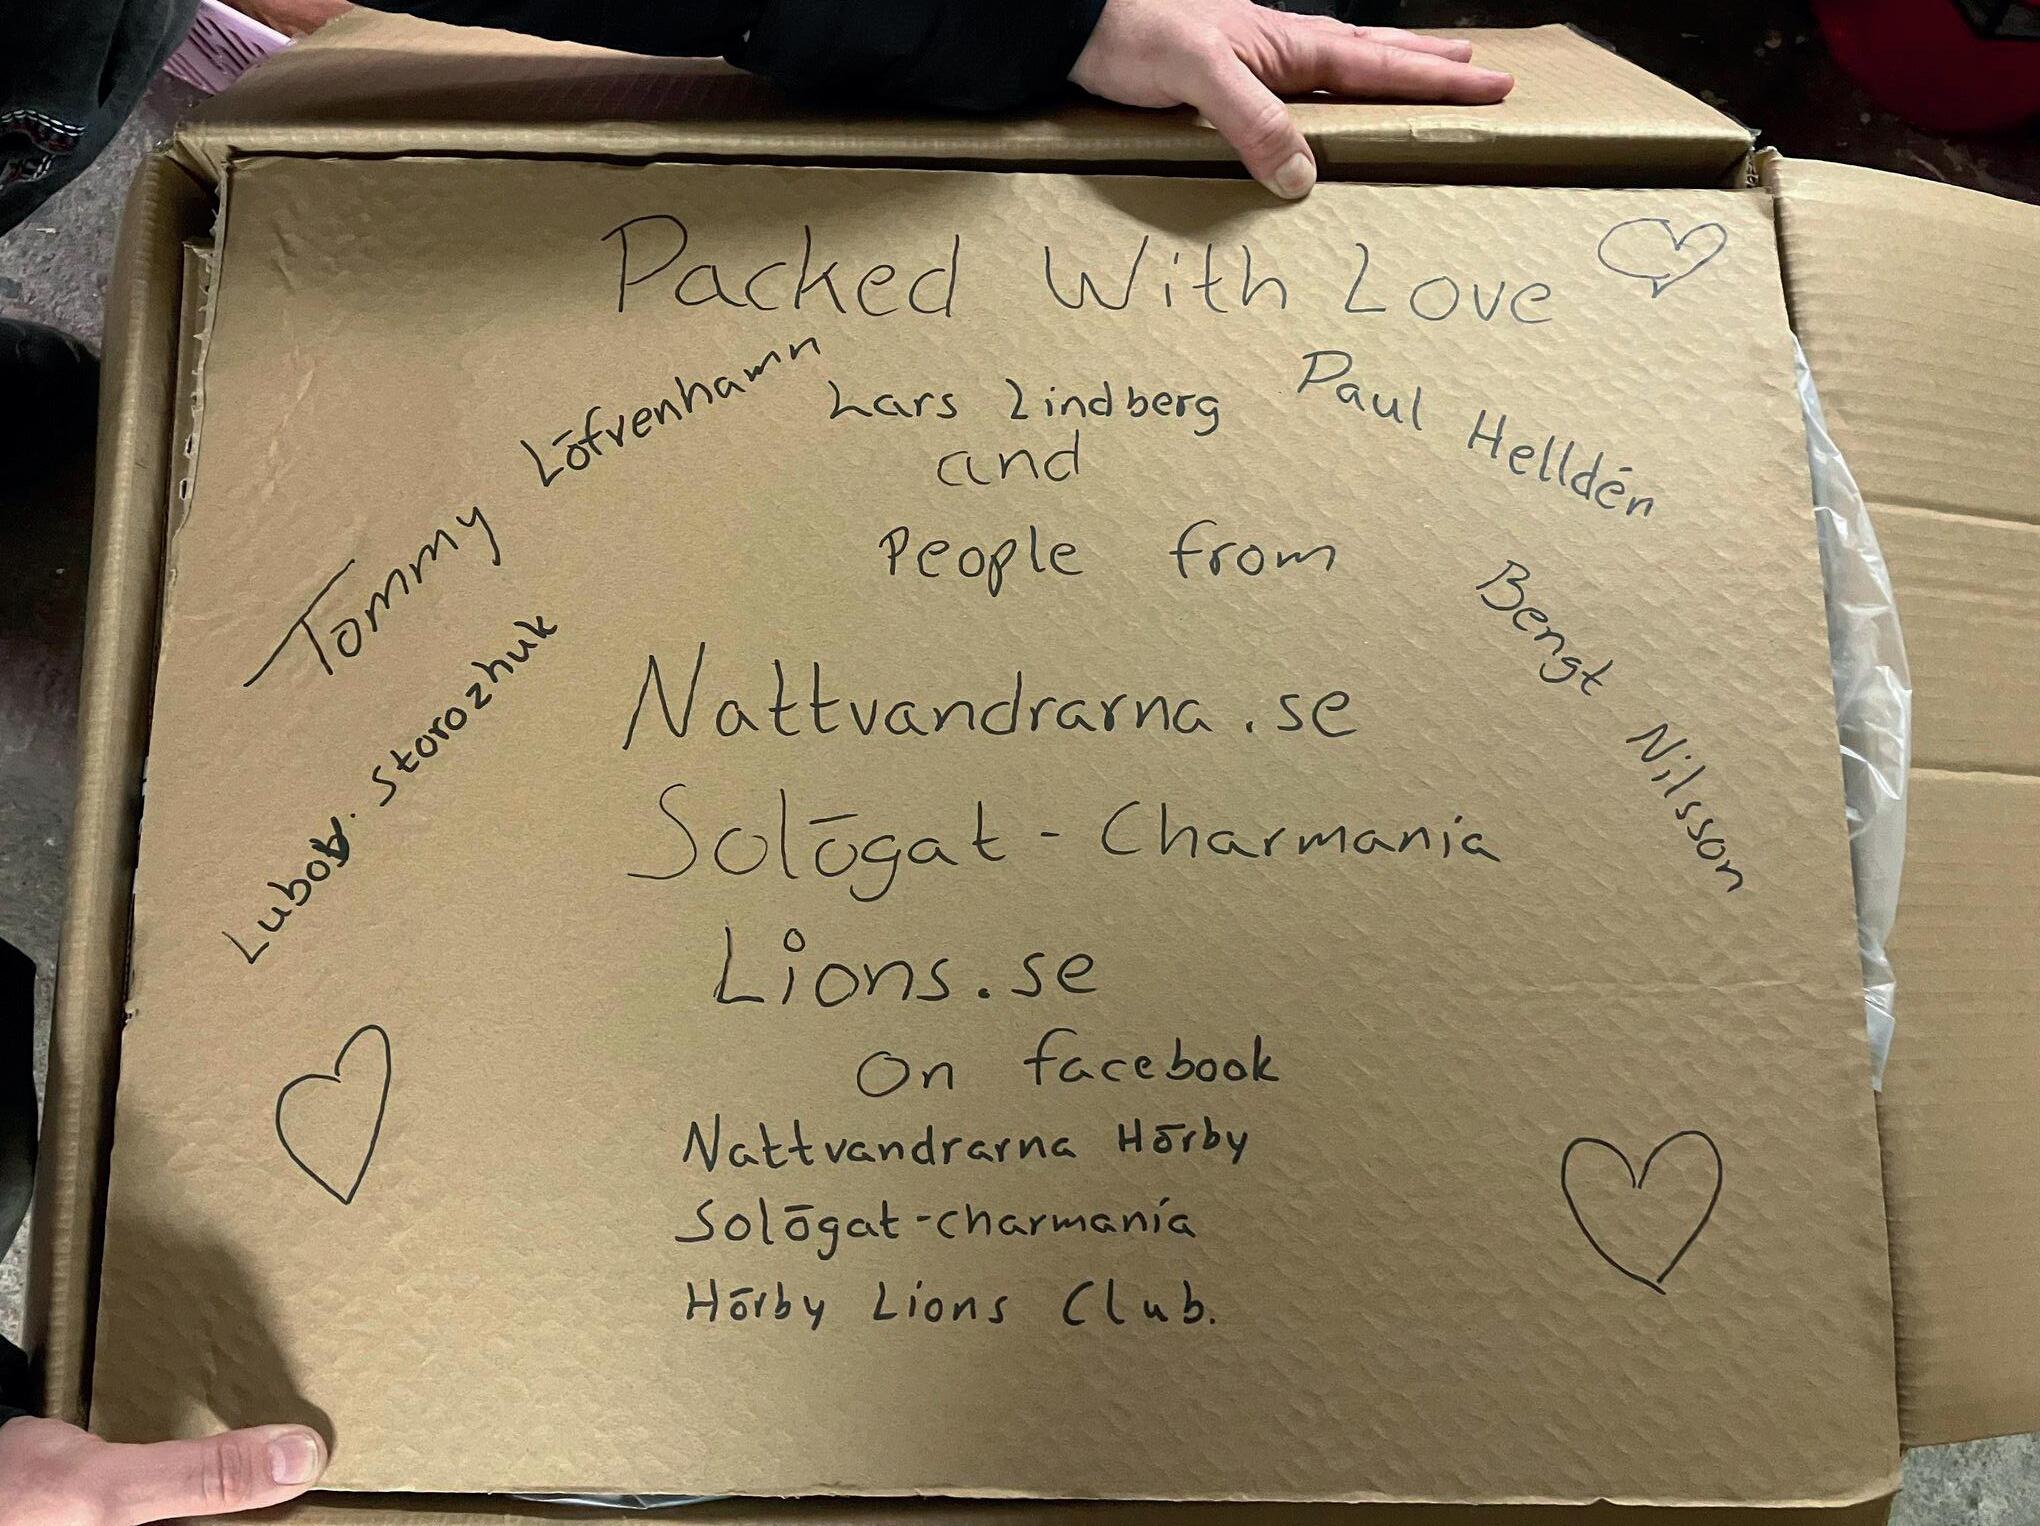 Packed With Love
Tommy Löfvenhamn
Lars Lindberg
Paul Helldén
and
People from
Lubov. Storozhuk
Bengt Nilsson
Nattvandrarna.se
Solögat - Charmania
Lions.se
On facebook
Nattvandrarna Hörby
Solögat-charmania
Hörby Lions Club.